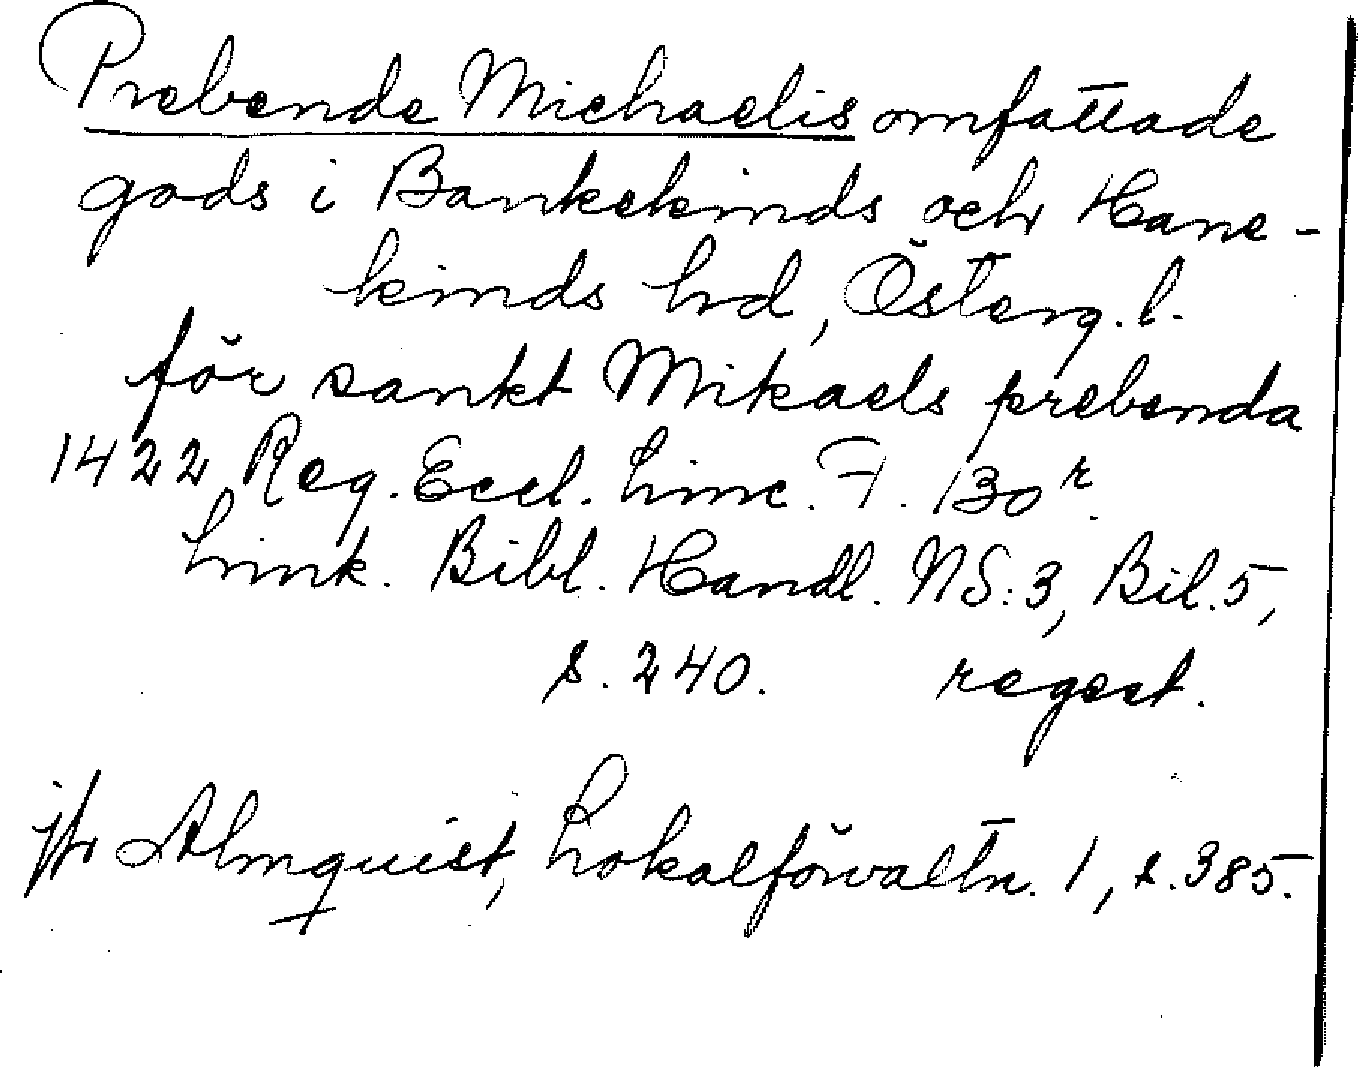 Prebende Michaelis omfattade
gods i Bankekinds och Hane-
kinds hd, Österg.l.
för sankt Mikaels prebenda
1422 Reg. Eccl. Linc. F. 130r.
Link. Bibl. Handl. NS:3, Bil.5,
s. 240. regest.
jfr Almquist, Lokalförvaltn. 1, s.385.